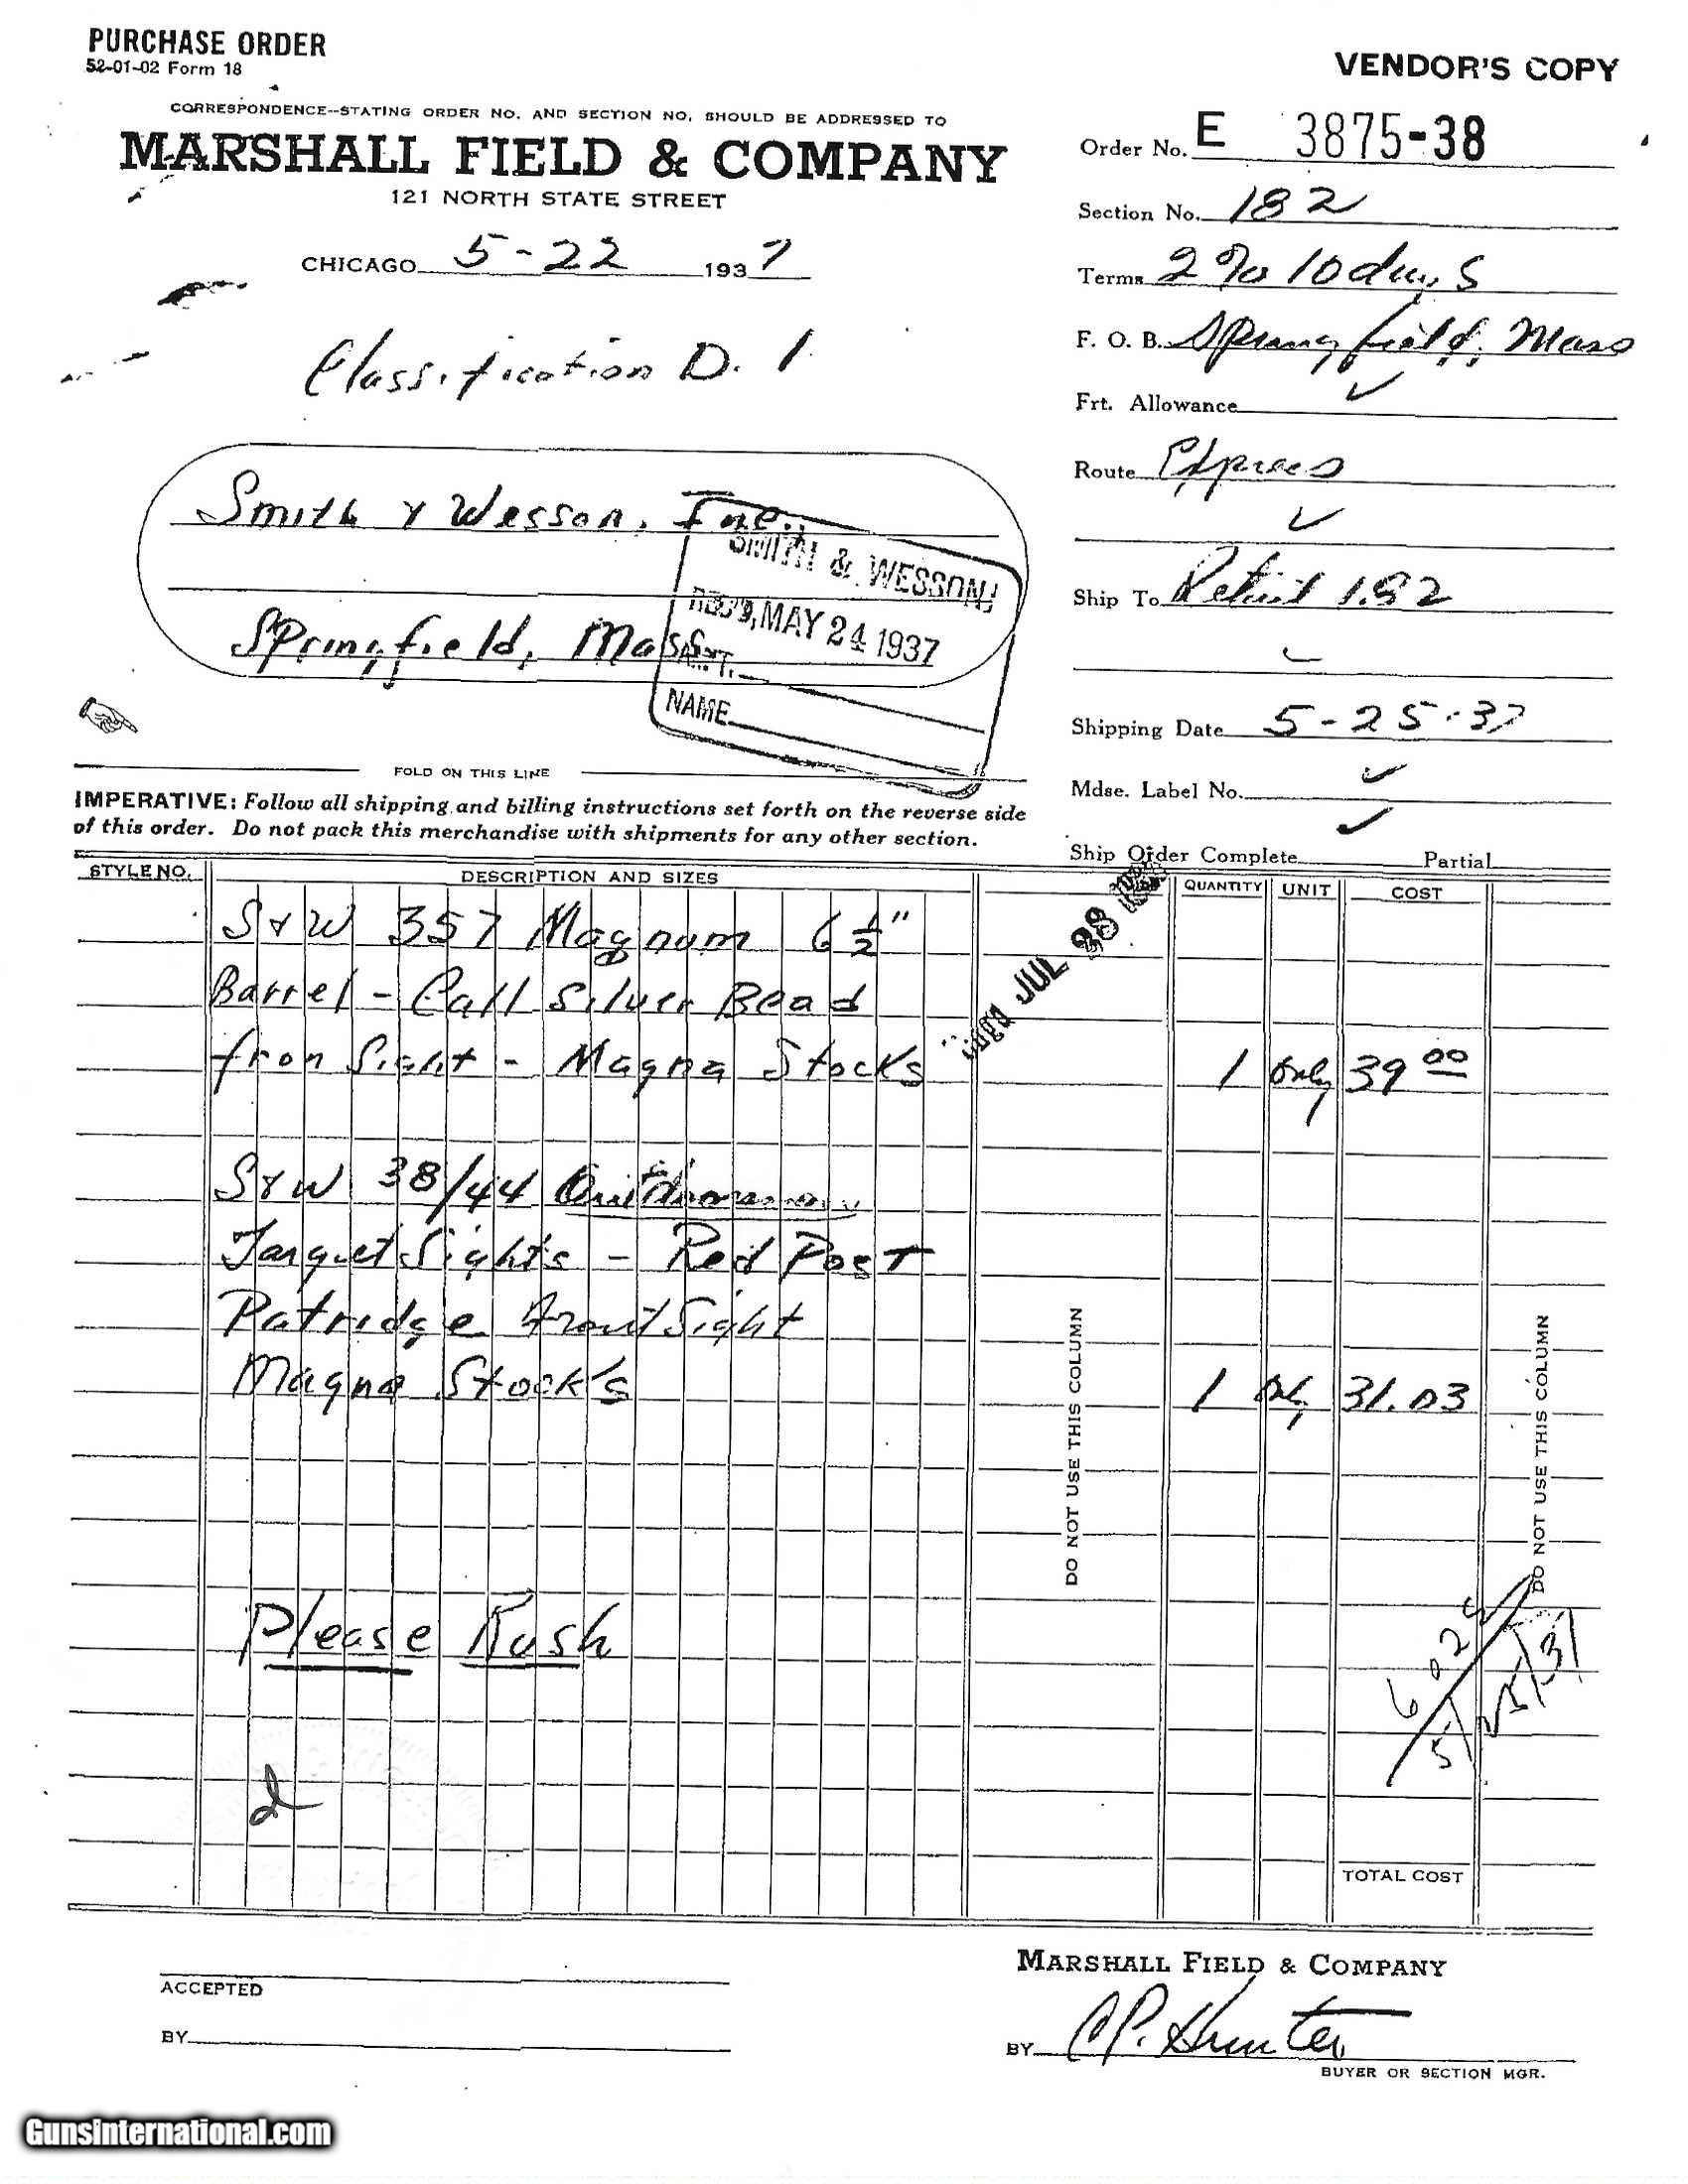 PURCHASE ORDER
52-01-02 Form 18
VENDOR'S COPY
CORRESPONDENCE--STATING ORDER NO. AND SECTION NO. SHOULD BE ADDRESSED TO
MARSHALL FIELD & COMPANY
121 NORTH STATE STREET
CHICAGO 5-22 1937
Classification D. 1
Order No. E 3875-38
Section No. 182
Terms 2% 10 days
F. O. B. Springfield, Mass
Frt. Allowance
Route Express
Ship To Retail 182
Shipping Date 5-25-37
Mdse. Label No.
Ship Order Complete Partial
Smith & Wesson, Inc.
Springfield, Mass
SMITH & WESSON
REC'D, MAY 24 1937
NAME
FOLD ON THIS LINE
IMPERATIVE: Follow all shipping and billing instructions set forth on the reverse side
of this order. Do not pack this merchandise with shipments for any other section.
STYLE NO. DESCRIPTION AND SIZES QUANTITY UNIT COST
S & W 357 Magnum 6 1/2"
Barrel - Call Silver Bead
fron Sight - Magna Stocks 1 only 39 00
JUL 28
S & W 38/44 Outdoorsman
Target Sights - Red Post
Patridge Front Sight
Magna Stocks 1 31.03
DO NOT USE THIS COLUMN
DO NOT USE THIS COLUMN
Please Rush
TOTAL COST
ACCEPTED
BY
MARSHALL FIELD & COMPANY
BY CP. Hunter
BUYER OR SECTION MGR.
GunsInternational.com